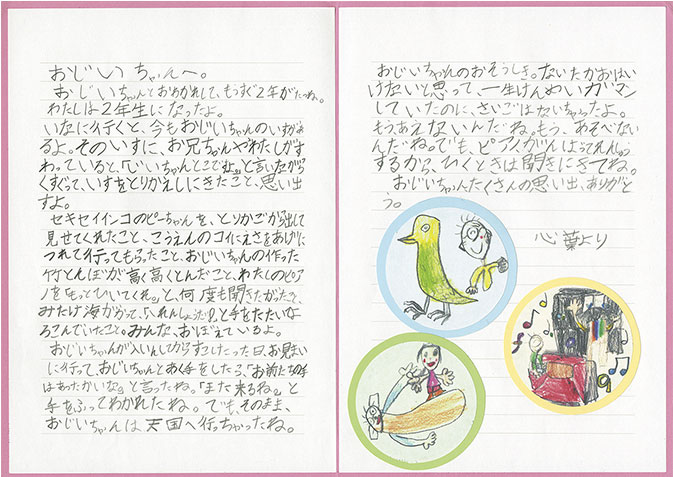 おじいちゃんへ。
おじいちゃんとおわかれして、もうすぐ2年がたつね。
わたしは2年生になったよ。
いなに行くと、今もおじいちゃんのいすがあ
るよ。そのいすに、お兄ちゃんやわたしがす
わっていると、「じいちゃんとこですよ。」と言いながら
くすぐって、いすをとりかえしにきたこと、思い出
すよ。
セキセイインコのピーちゃんを、とりかごから出して
見せてくれたこと、こうえんのコイにえさをあげに
つれて行ってもらったこと、おじいちゃんの作った
竹とんぼが高く高くとんだこと、わたしのピア
ノを「もっとひいてくれ。」と、何度も聞きたがったこと、
と手をたたいてよ
ろこんでいたこと。みんな、おぼえているよ。
おじいちゃんが入いんしてからすこしたった日、お見まい
に行って、おじいちゃんとあく手をしたら、「お前た
はあったかいな。」と言ったね。「また来るね。」と
手をふってわかれたね。でも、そのまま、
おじいちゃんは天国へ行っちゃったね。
おじいちゃんのおそうしき。ないたかおはい
けないと思って、一生けんめいガマン
していたのに、さいごはないちゃったよ。
もう、あえないんだね。もう、あそべない
んだね。でも、ピアノがんばってれんしゅう
するから、ひくときは聞きにきてね。
おじいちゃんたくさんの思い出、ありがと
う。
心葉より